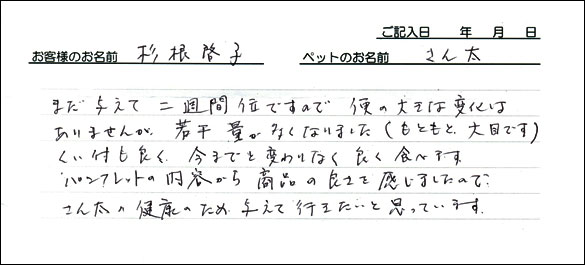 ご記入日 年 月 日
お客様のお名前 杉根啓子 ペットのお名前 さん太
まだ与えて二週間位ですので 便の大きさは変化は
ありませんが、若干量が少なくなりました(もともと、大目です)
くい付も良く、今までと変わりなく良く食べます。
パンフレットの内容から商品の良さを感じましたので、
さん太の健康のため、与えて行きたいと思っています。